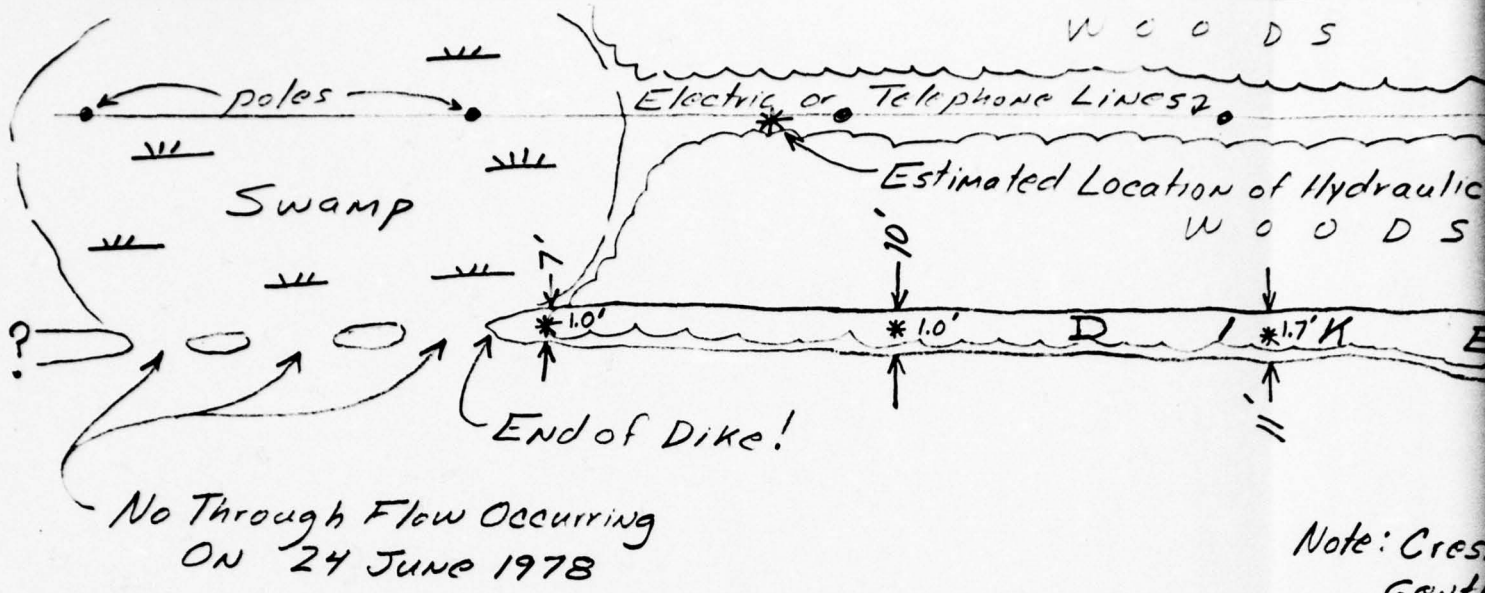 WOODS
poles
Electric or Telephone Lines
Estimated Location of Hydraulic
Swamp
WOODS
7'
10'
?
1.0'
1.0'
1.7'
DIKE
11'
End of Dike!
No Through Flow Occurring
ON 24 June 1978
Note: Cres